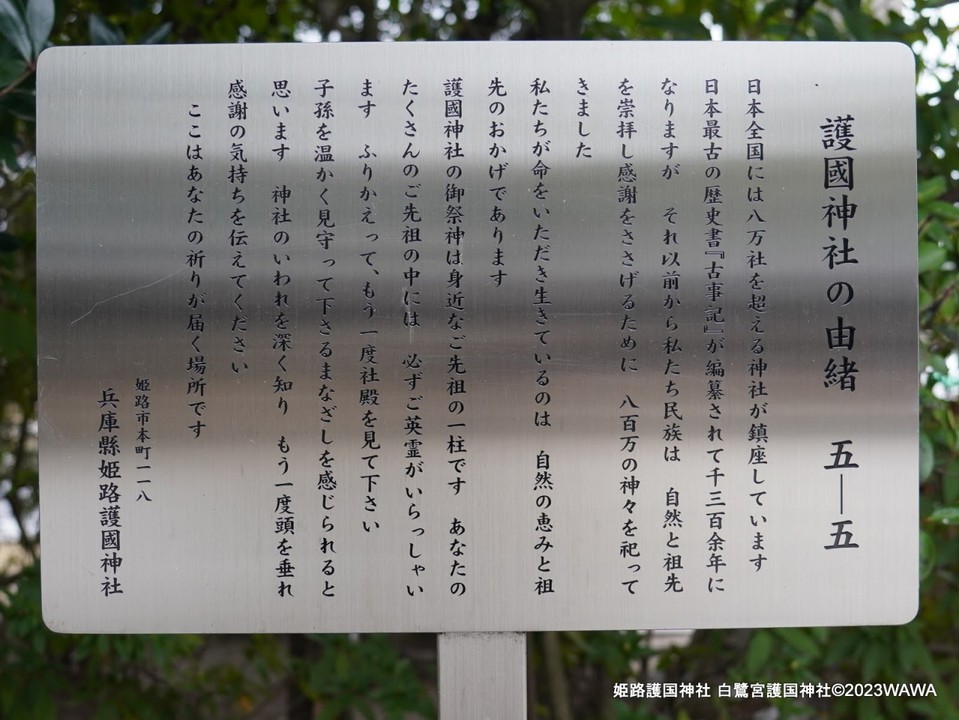 護國神社の由緒　五―五
日本全国には八万社を超える神社が鎮座しています
日本最古の歴史書『古事記』が編纂されて千三百余年に
なりますが　それ以前から私たち民族は　自然と祖先
を崇拝し感謝をささげるために　八百万の神々を祀って
きました
私たちが命をいただき生きているのは　自然の恵みと祖
先のおかげであります
護國神社の御祭神は身近なご先祖の一柱です　あなたの
たくさんのご先祖の中には　必ずご英霊がいらっしゃい
ます　ふりかえって、もう一度社殿を見て下さい
子孫を温かく見守って下さるまなざしを感じられると
思います　神社のいわれを深く知り　もう一度頭を垂れ
感謝の気持ちを伝えてください
ここはあなたの祈りが届く場所です
姫路市本町一一八
兵庫縣姫路護國神社
姫路護国神社 白鷺宮護国神社©2023WAWA